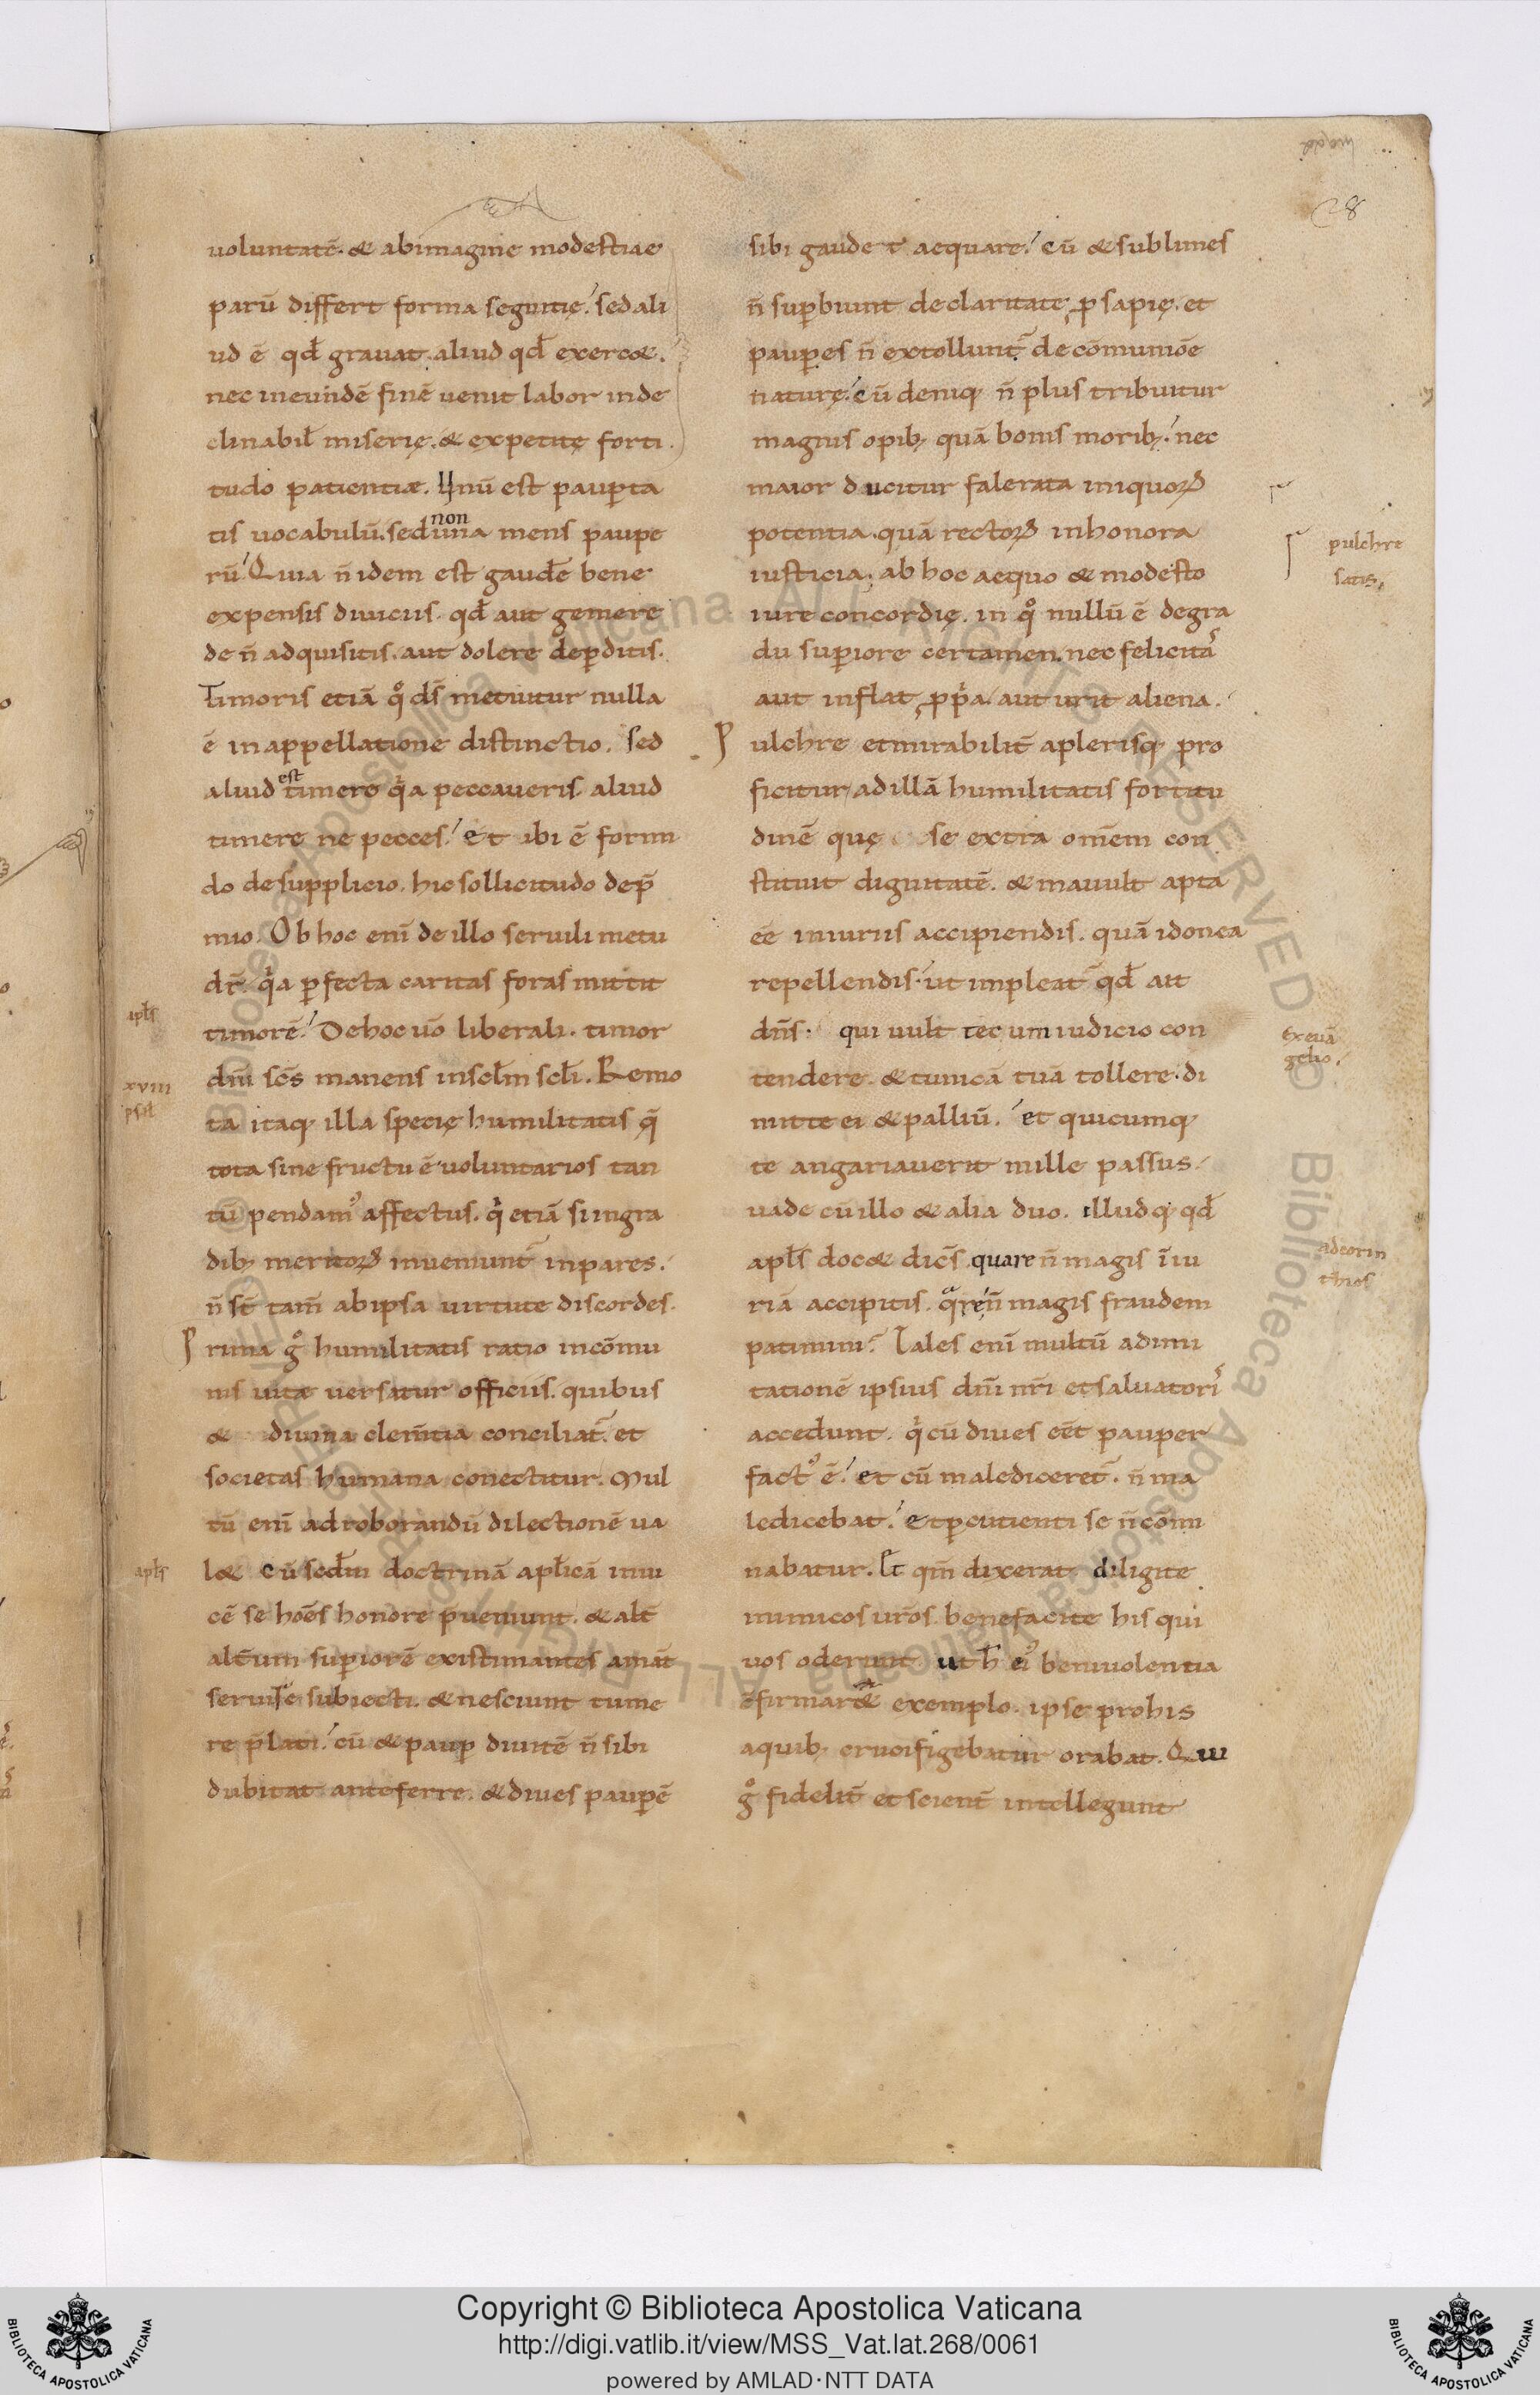 28
uoluntatē. & abimagine modestiae
parū differt forma segnitię. sed ali
ud ē qđ grauat. aliud qđ exerc&.
nec ineundē finē uenit labor inde
clinabił miserię. & expetitę forti
tudo patientiæ. Unū est paup̱ta
tis uocabulū. sed non una mens paupe
rū. Quia n̄ idem est gaudēe bene
expensis diuiciis. qđ aut gemere
de n̄ adquisitis. aut dolere dep̱ditis.
Timoris etiā qͦ dš metuitur nulla
ē inappellatione distinctio. sed
aliud est timere qͥa peccaueris. aliud
timere ne pecces. et ibi ē formi
do desupplicio. hic sollicitudo dep̄
mio. Ob hoc enī de illo seruili metu
dr̄. qͥa p̱fecta caritas foras mittit
timorē. Dehoc uō liberali. timor
dnī scs̄ manens insclm̄ sclī. Remo
ta itaq; illa specię humilitatis q̄
tota sine fructu ē uoluntarios tan
tū pendamꝰ affectus. qͥ etiā si ingra
dib; meritoꝝ inueniunt᷑ inpares.
n̄ st̄ tam̄ ab ipsa uirtute discordes.
Prima gͦ humilitatis ratio incōmu
nis uitæ uersatur officiis. quibus
& diuina clem̄tia conciliat᷑. et
societas humana conectitur. Mul
tū enī adroborandū dilectionē ua
l& cū scdm̄ doctrinā apłicā inui
cē se hoēs honore p̄ueniunt. & alt̄
alt̄um superiorē existimantes amāt
seruire subiecti. & nesciunt tume
re p̄lati. cū & paup̱ diuitē n̄ sibi
dubitat anteferre. & diues paup̱ē
sibi gaudet aequare. cū & sublimes
n̄ sup̱biunt declaritate ꝓsapię. et
paup̱es n̄ extollunt᷑ de cōmuniōe
naturę. cū deniq; n̄ plus tribuitur
magnis opib; quā bonis morib;. nec
maior ducitur falerata iniquoꝝ
potentia. quā rectoꝝ inhonora
iusticia. ab hoc aequo & modesto
iure concordię. in qͦ nullū ē degra
du sup̱iore certamen. nec felicitaˢ
aut inflat ꝓpͥa. aut urit aliena.
Pulchre etmirabilit̄ aplerisq; pro
ficitur adillā humilitatis fortitu
dinē quę se extra om̄em con
stituit dignitatē. & mauult apta
ēe iniuriis accipiendis. quā idonea
repellendis. ut impleat᷑ qđ ait
dn̄s. qui uult tecum iudicio con
tendere. & tunicā tuā tollere. di
mitte ei & palliū. et quicumq;
te angariauerit mille passus.
uade cū illo & alia duo. illudq; qđ
apłs doc& dicēs. quare n̄ magis iniu
riā accipitis. qͣre n̄ magis fraudem
patimini. Tales enī multū adimi
tationē ipsius dnī nr̄i etsaluatoriˢ
accedunt. qͥ cū diues eēt pauper
factꝰ ē. et cū malediceret᷑. n̄ ma
ledicebat. et p̱cutienti se n̄ cōmi
nabatur. Et qm̄ dixerat. diligite
inimicos uros̄. benefacite his qui
uos oderunt. ut h̄ eiꝰ beniuolentia
c̄firmar&᷑ exemplo. ipse prohis
aquib; crucifigebatur orabat. Qui
gͦ fidelit̄ et scient̄ intellegunt
apłs
xviii
psał
apłs
pulchre
satis
Ex euā
gelio.
adcorin
thios
Copyright © Biblioteca Apostolica Vaticana
http://digi.vatlib.it/view/MSS_Vat.lat.268/0061
powered by AMLAD·NTT DATA
BIBLIOTECA APOSTOLICA VATICANA
BIBLIOTECA APOSTOLICA VATICANA
© Biblioteca Apostolica Vaticana ALL RIGHTS RESERVED
© Biblioteca Apostolica Vaticana ALL RIGHTS RESERVED